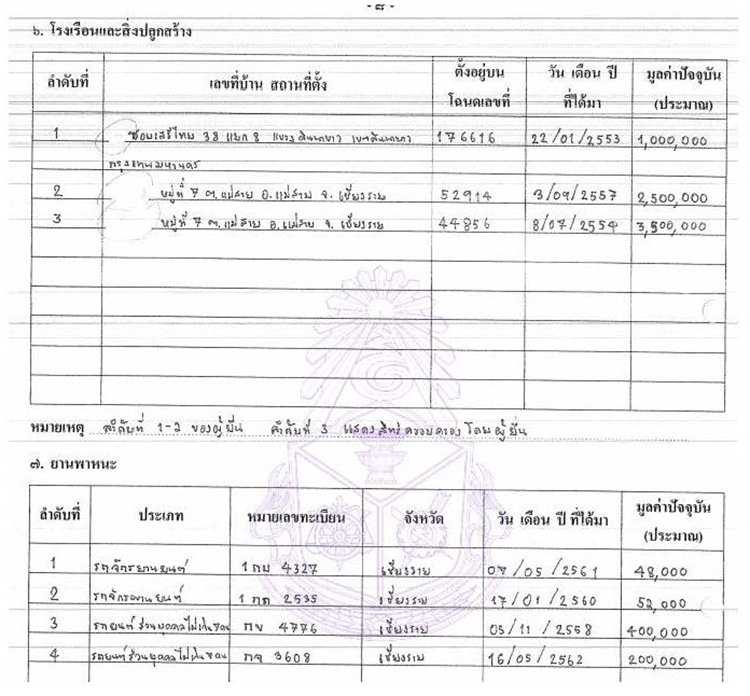 - ๘ -
๖. โรงเรือนและสิ่งปลูกสร้าง
ลำดับที่ เลขที่บ้าน สถานที่ตั้ง ตั้งอยู่บน วัน เดือน ปี มูลค่าปัจจุบัน
โฉนดเลขที่ ที่ได้มา (ประมาณ)
1 ซอยเสรีไทย 38 แยก 8 แขวงคันนายาว เขตคันนายาว 176616 22/01/2553 1,000,000
กรุงเทพมหานคร
2 หมู่ที่ 7 ต.แม่สาย อ.แม่สาย จ.เชียงราย 52914 3/09/2557 2,500,000
3 หมู่ที่ 7 ต.แม่สาย อ.แม่สาย จ.เชียงราย 44856 8/07/2554 3,500,000
หมายเหตุ ลำดับที่ 1-2 ของผู้ยื่น ลำดับที่ 3 แสดงสิทธิครอบครองโดยผู้ยื่น
๗. ยานพาหนะ
ลำดับที่ ประเภท หมายเลขทะเบียน จังหวัด วัน เดือน ปี ที่ได้มา มูลค่าปัจจุบัน
(ประมาณ)
1 รถจักรยานยนต์ 1 กบ 4327 เชียงราย 07/05/2561 48,000
2 รถจักรยานยนต์ 1 กด 2535 เชียงราย 17/01/2560 52,000
3 รถยนต์ส่วนบุคคลไม่เกิน 7 คน กข 4776 เชียงราย 05/11/2558 400,000
4 รถยนต์ส่วนบุคคลไม่เกิน 7 คน กจ 3608 เชียงราย 16/05/2562 200,000